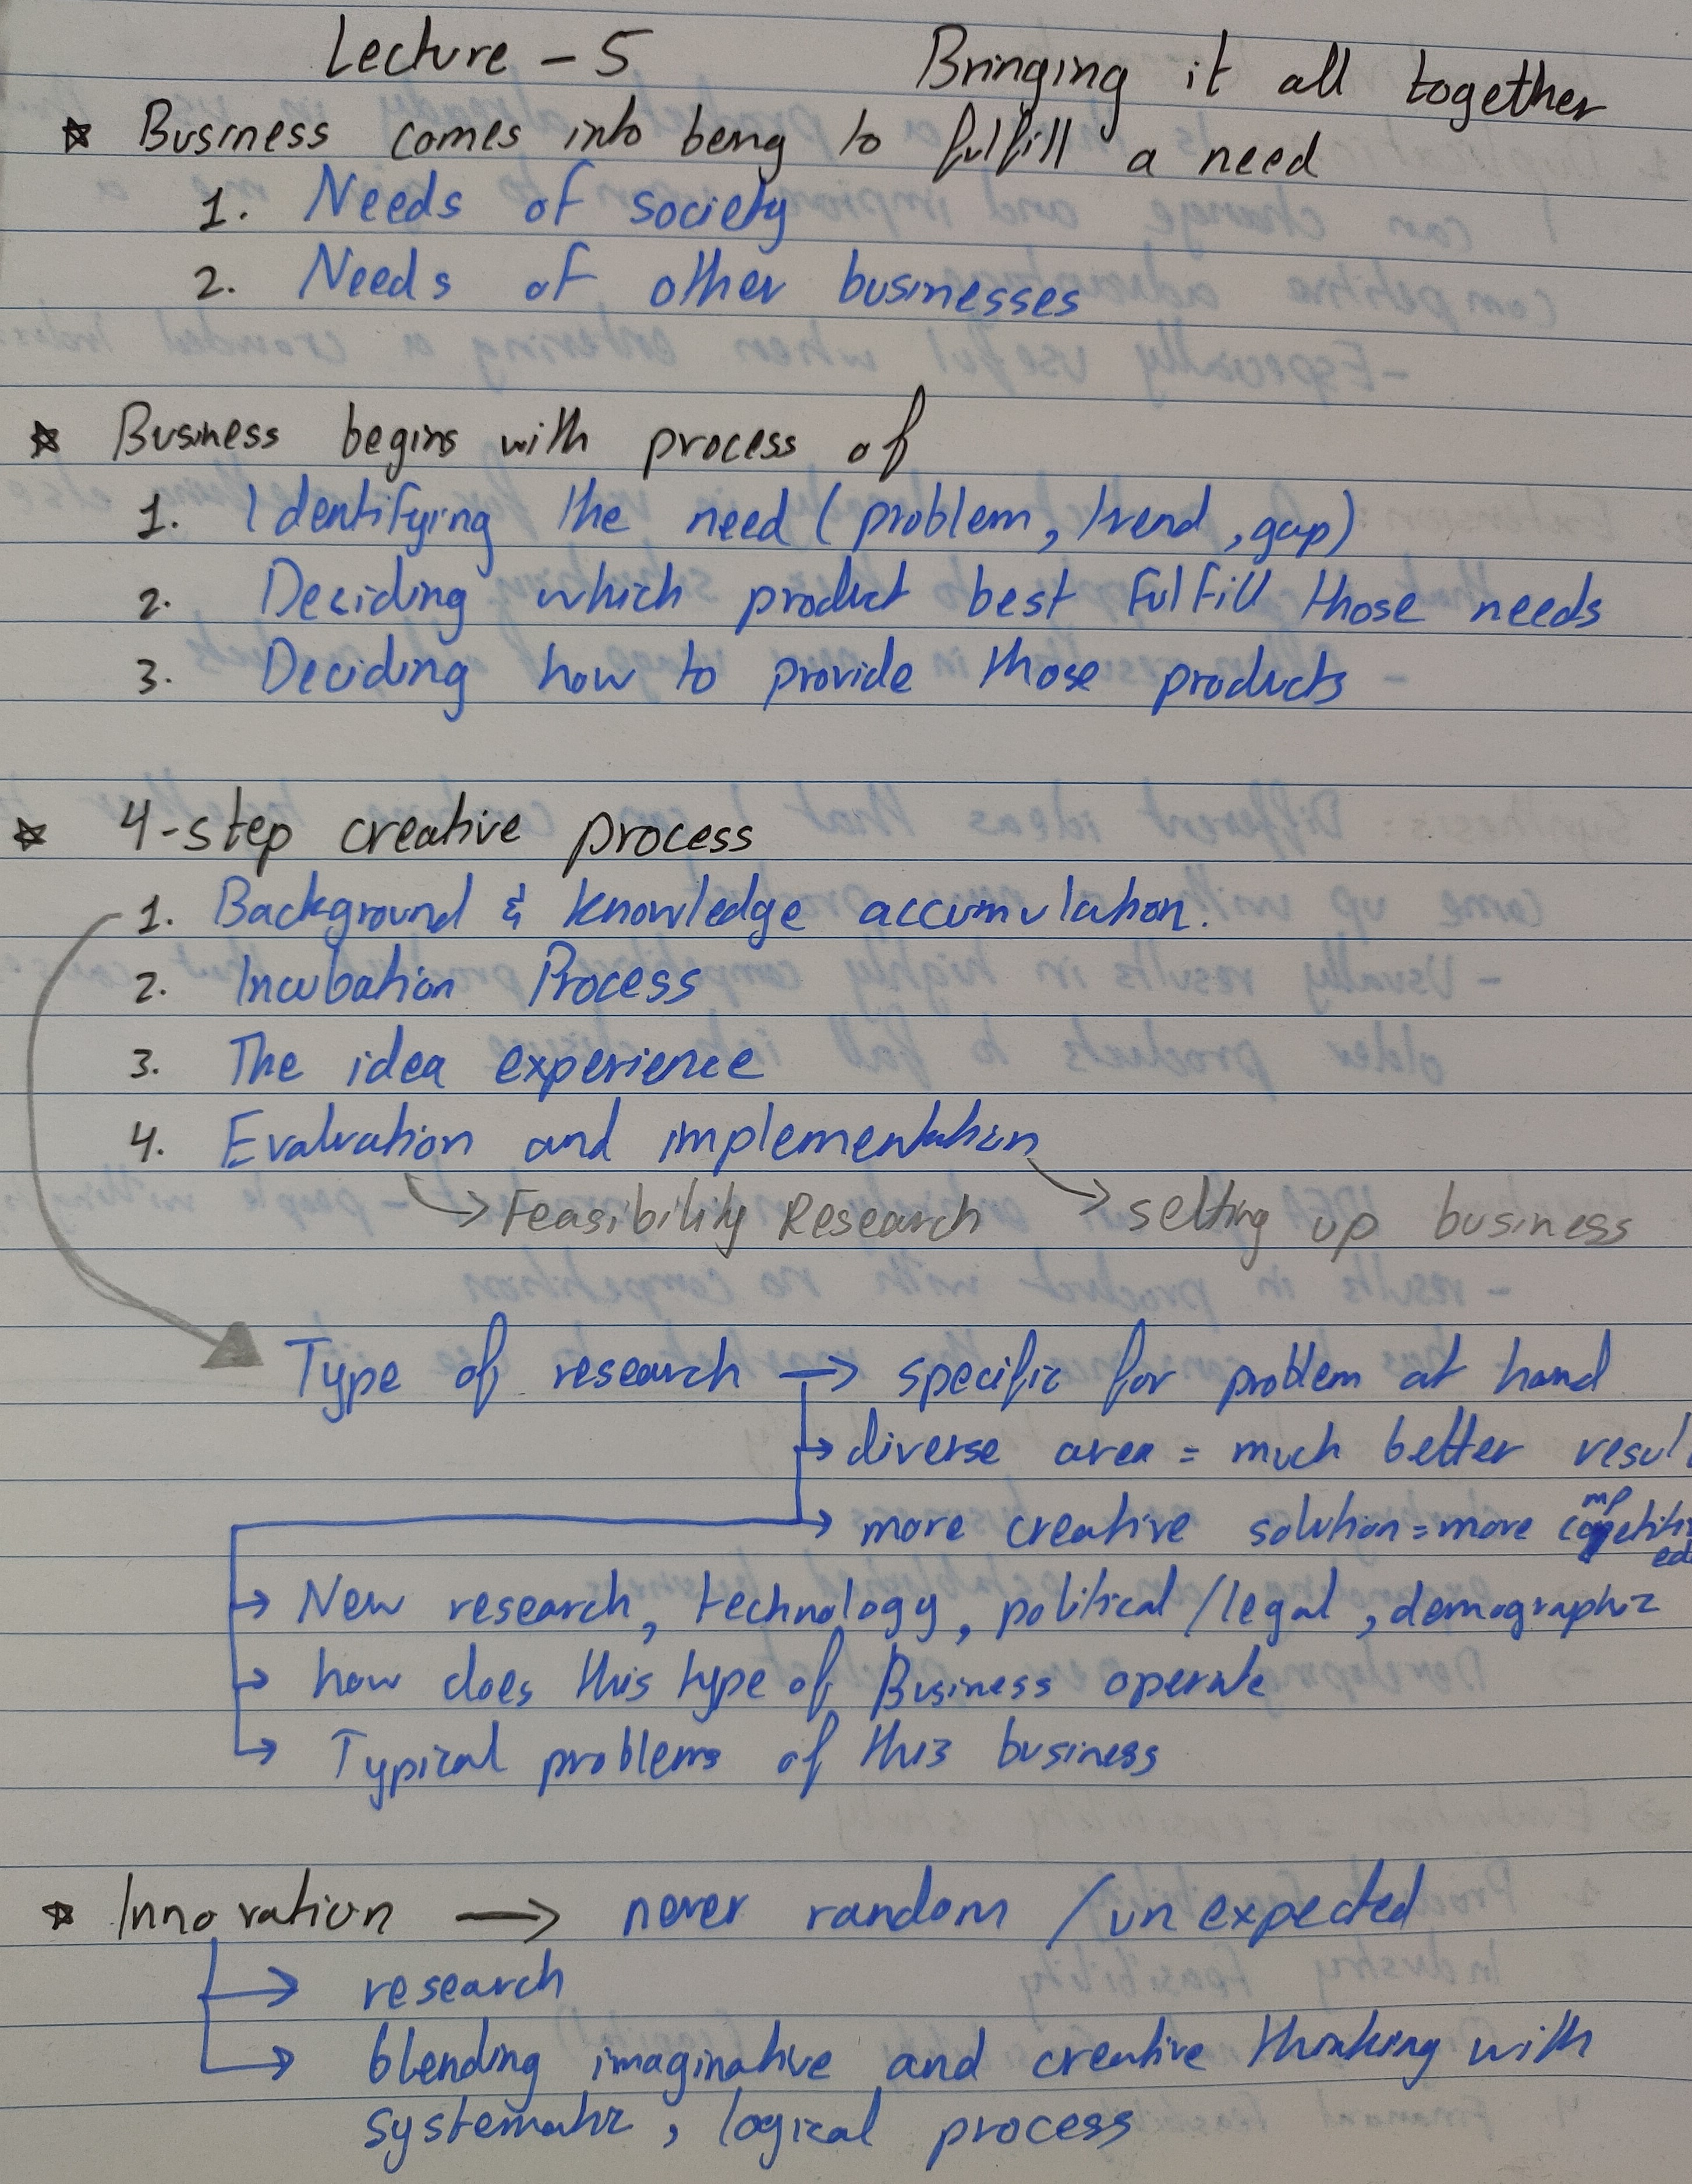 Lecture - 5 Bringing it all together
☆ Business comes into being to fulfill a need
1. Needs of society
2. Needs of other businesses
☆ Business begins with process of
1. Identifying the need (problem, trend, gap)
2. Deciding which product best fulfill those needs
3. Deciding how to provide those products
☆ 4-step creative process
1. Background & knowledge accumulation.
2. Incubation Process
3. The idea experience
4. Evaluation and implementation
→ Feasibility Research → setting up business
Type of research → specific for problem at hand
→ diverse area = much better resul
→ more creative solution = more competitiv
ed
→ New research, technology, political/legal, demographic
→ how does this type of Business operate
→ Typical problems of this business
☆ Innovation → never random / unexpected
→ research
→ blending imaginative and creative thinking with
systematic, logical process